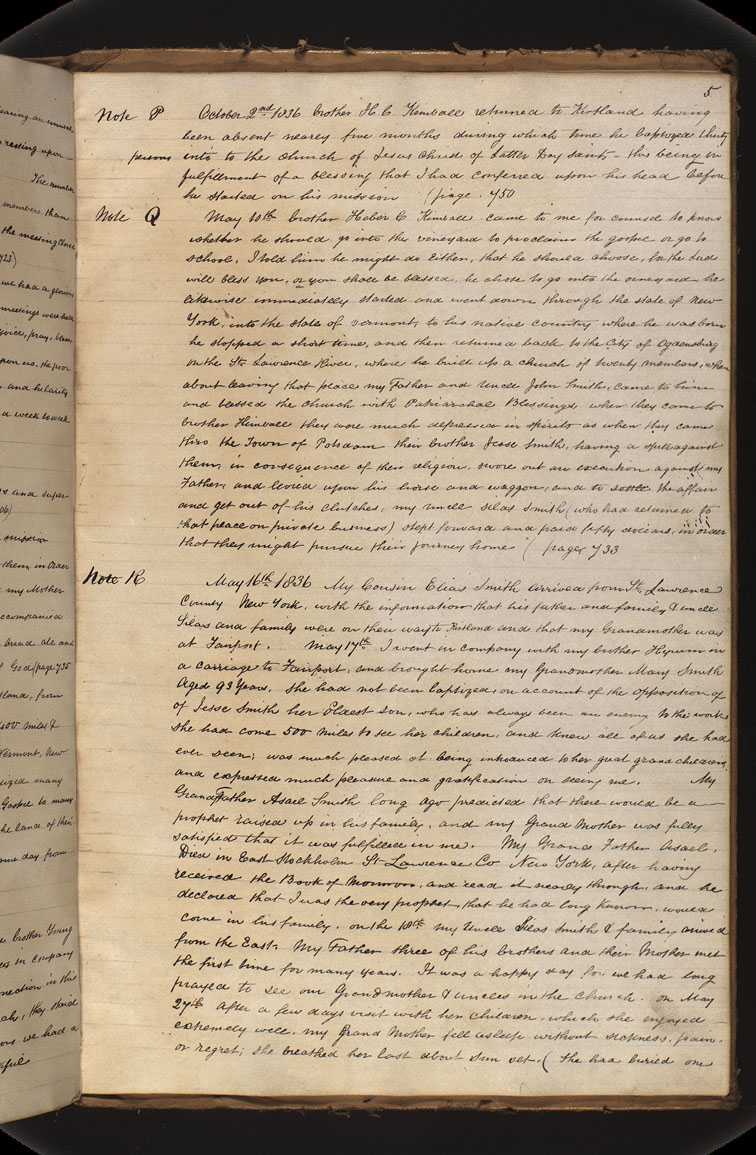 earing an interest
resting upon —
The number
members than
the meeting closed
723)
we had a glorious
meetings were held
rejoice, pray, bless
upon us, the poor
and hilarity
a week to wait
and super-
mission
them in order
my Mother
accompanied
bread ale and
God (page 735
tland, from
500 miles &
Vermont, New
tized many
Gospel to many
the land of their
some day from
brother Young
in company
nection in this
they should
we had a
5
Note P October 2nd 1836 brother H. C. Kimball returned to Kirtland having
been absent nearly five months during which time he baptized thirty
persons into to the church of Jesus Christ of Latter Day Saints — this being in
fulfillment of a blessing that I had conferred upon his head before
he started on his mission (page 750
Note Q May 10th brother Heber C Kimball came to me for counsel to know
whether he should go into the vineyard to proclaim the gospel or go to
school, I told him he might do either, that he should choose, for the Lord
will bless you, or you shall be blessed, he chose to go into the vineyard, he
likewise immediately started and went down through the state of New
York, into the state of vermont, to his native country where he was born
he stopped a short time, and then returned back to the City of Ogdensburg
on the St. Lawrence River, where he built up a church of twenty members, when
about leaving that place my Father and Uncle John Smith, came to him
and blessed the church with Patriarchal Blessings, when they came to
brother Kimball they were much depressed in spirits as when they came
thro the Town of Potsdam their brother Jesse Smith, having a spite against
them, in consequence of their religion, swore out an execution against my
Father, and levied upon his horse and waggon, and to settle the affair
and get out of his clutches, my uncle Silas Smith (who had returned to
that peace on private business) stept forward and paid fifty dollars, in order
that they might pursue their journey home (page 733
Note R May 16th 1836 My Cousin Elias Smith arrived from St. Lawrence
County New York, with the information that his father and family & uncle
Silas and family were on their way to Kirtland and that my Grandmother was
at Fairport. May 17th I went in company with my brother Hyrum in
a carriage to Fairport, and brought home my Grandmother Mary Smith
Aged 93 Years. She had not been baptized, on account of the opposition of
of Jesse Smith her Eldest Son, who has always been an enemy to the work
she had come 500 miles to see her children, and knew all of us she had
ever seen; was much pleased at being introduced to her great grand children,
and expressed much pleasure and gratification on seeing me. My
GrandFather Asael Smith long ago predicted that there would be a —
prophet raised up in his family, and my Grand Mother was fully
satisfied that it was fulfilled in me. My Grand Father Asael.
Died in East Stockholm St Lawrence Co New York, after having
received the Book of Mormon, and read it nearly through, and he
declared that I was the very prophet, that he had long known would
come in his family. on the 18th my Uncle Silas Smith & family arrived
from the East. My Father three of his brothers and their Mother met
the first time for many years. It was a happy day for we had long
prayed to see our Grandmother & uncles in the church. on May
27th after a few days visit with her children, which she enjoyed
extremely well, my Grand Mother fell asleep without sickness, pain.
or regret; she breathed her last about sun set. (She had buried one